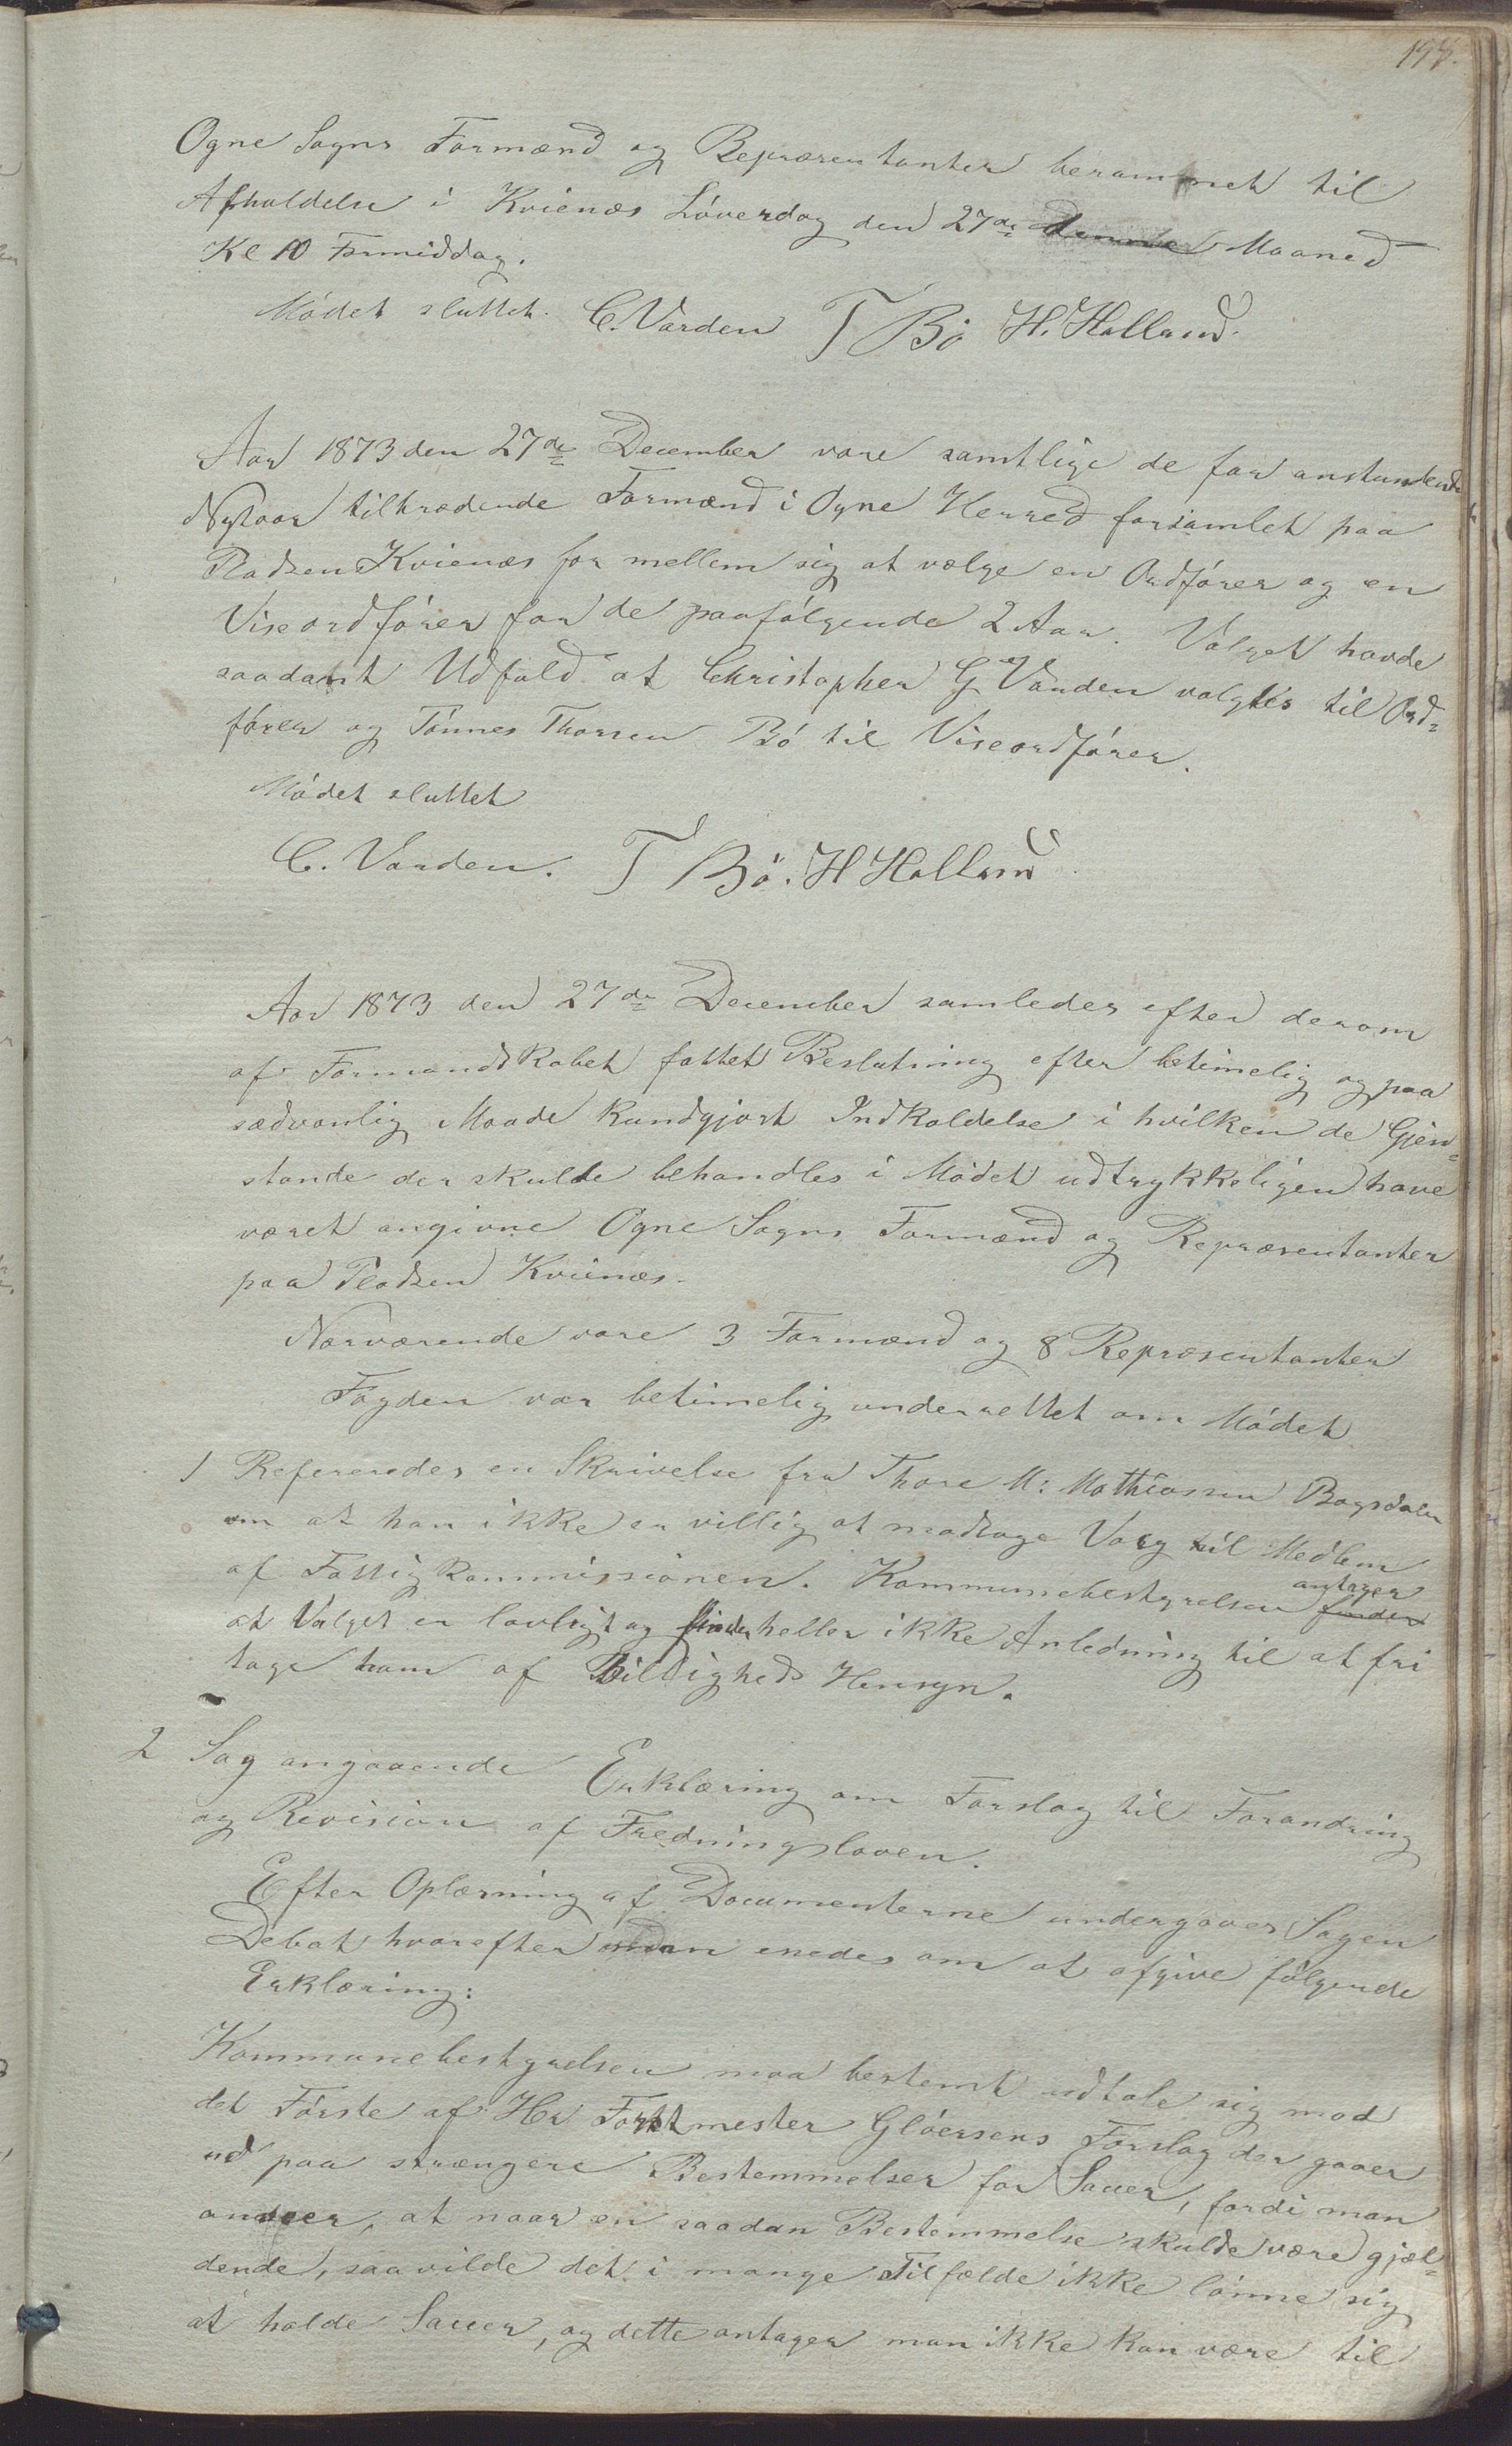 Ogne Sogns Formænd og Repræsentanter berammet til
Afholdelse i Kvienæs Löverdag den 27de denne Maaned
Kl 10 Formiddag.
Mödet sluttet. C. Varden T Bö H. Holland.
Aar 1873 den 27de December vare samtlige de for anstundende
Nytaar tiltrædende Formænd i Ogne Herred forsamlet paa
Pladsen Kvienæs for mellem sig at vælge en Ordförer og en
Viseordförer for de paafölgende 2 Aar. Valget havde
saadant Udfald at Christopher G. Varden valgtes til Ord-
förer og Tönnes Thorsen Bö til Viseordförer.
Mödet sluttet
C. Varden. T Bö. H Holland
Aar 1873 den 27de December samledes efter derom
af Formandskabet fattet Beslutning efter betimelig og paa
sædvanlig Maade kundgjort Indkaldelse i hvilken de Gjen-
stande der skulde behandles i Mödet udtrykkeligen have
været angivne Ogne Sogns Formænd og Repræsentanter
paa Pladsen Kvienæs.
Nærværende vare 3 Formænd og 8 Repræsentanter
Fogden var betimelig underrettet om Mödet
1 Refereredes en Skrivelse fra Thore M: Mathiassen Bogsdalen
om at han ikke er villig at modtage Varg til Medlem
af Fattigkommissionen. Kommunebestyrelsen finder antager
at Valget er lovligt og finder heller ikke Anledning til at fri
tage ham af Billigheds Hensyn.
2 Sag angaaende Erklæring om Forslag til Forandring
og Revision af Fredningsloven.
Efter Oplæsning af Documenterne undergaves Sagen
Debat hvorefter man enedes om at afgive fölgende
Erklæring:
Kommunebestyrelsen maa bestemt udtale sig mod
det Förste af Hr Forstmester Glöersens Forslag der gaaer
ud paa strængere Bestemmelser for Sauer, fordi man
andseer, at naar en saadan Bestemmelse skulde være gjæl-
dende, saa vilde det i mange Tilfælde ikke lönne sig
at holde Sauer, og dette antager man ikke kan være til